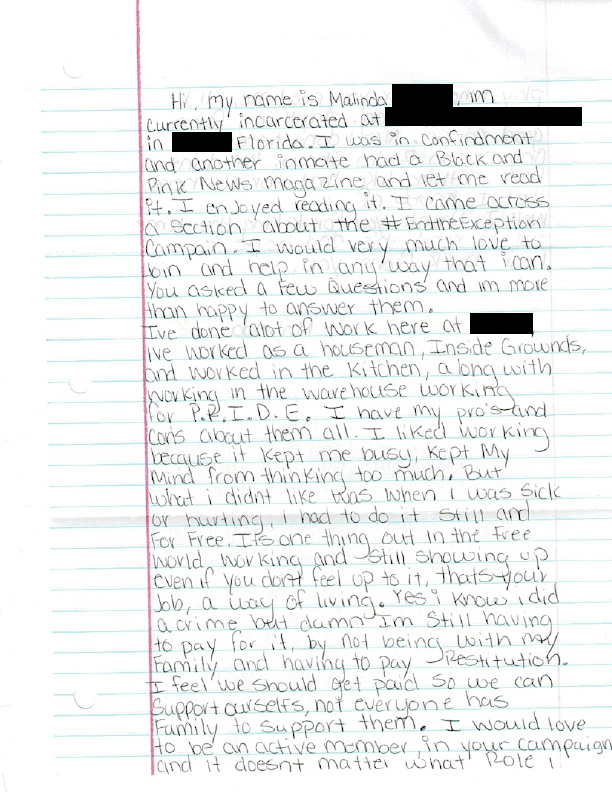 Hi, my name is Malinda , im
currently incarcerated at
in Florida. I was in confindment
and another inmate had a Black and
Pink News Magazine and let me read
it. I enjoyed reading it. I came across
a section about the #EndtheException
Campain. I would very much love to
join and help in any way that i can.
You asked a few Questions and im more
than happy to answer them.
I've done alot of work here at
Ive worked as a houseman, Inside Grounds,
and worked in the kitchen, along with
working in the warehouse working
for P.R.I.D.E. I have my pro's and
cons about them all. I liked working
because it kept me busy, kept My
Mind from thinking too much. But
what i didnt like was when I was sick
or hurting, I had to do it still and
for Free. Its one thing out in the Free
World working and still showing up
even if you dont feel up to it, thats your
Job, a way of living. Yes i know i did
a crime but damn Im Still having
to pay for it, by not being with my
Family and having to pay Restitution.
I feel we should get paid so we can
Support ourselfs, not everyone has
Family to support them. I would love
to be an active member in your campaign
and it doesnt matter what Role I